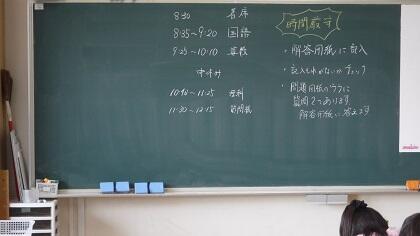 8:30 着席
8:35～9:20 国語
9:25～10:10 算数
中休み
10:40～11:25 理科
11:30～12:15 質問紙
時間厳守
・解答用紙に記入
・記入もれがないかチェック
・問題用紙のウラに
質問2つあります
解答用紙に答えます